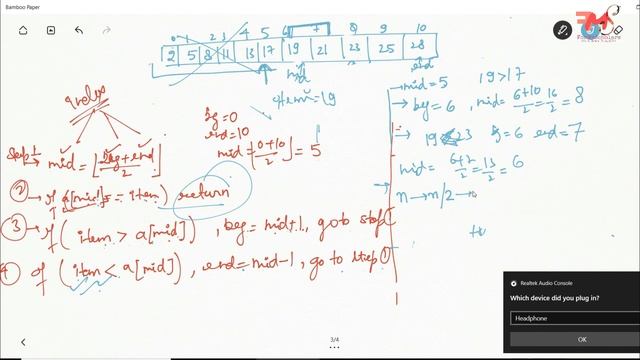 Bamboo Paper
0 1 2 3 4 5 6 7 8 9 10
2 5 8 11 13 17 19 21 23 25 28
mid end
item = 19
beg = 0
end = 10
mid = ⌊0+10/2⌋ = 5
Step 1 → mid = ⌊beg+end/2⌋
② → if a[mid] == item) return
③ → if (item > a[mid]), beg = mid+1, go to step 1
④ if (item < a[mid]), end = mid-1, go to step ①
→ mid = 5 19 > 17
→ beg = 6, mid = 6+10/2 = 16/2 = 8
→ 19 < 23 end = 7
mid = 6+7/2 = 13/2 = 6
→ n → n/2 →
3/4
Realtek Audio Console
Which device did you plug in?
Headphone
OK